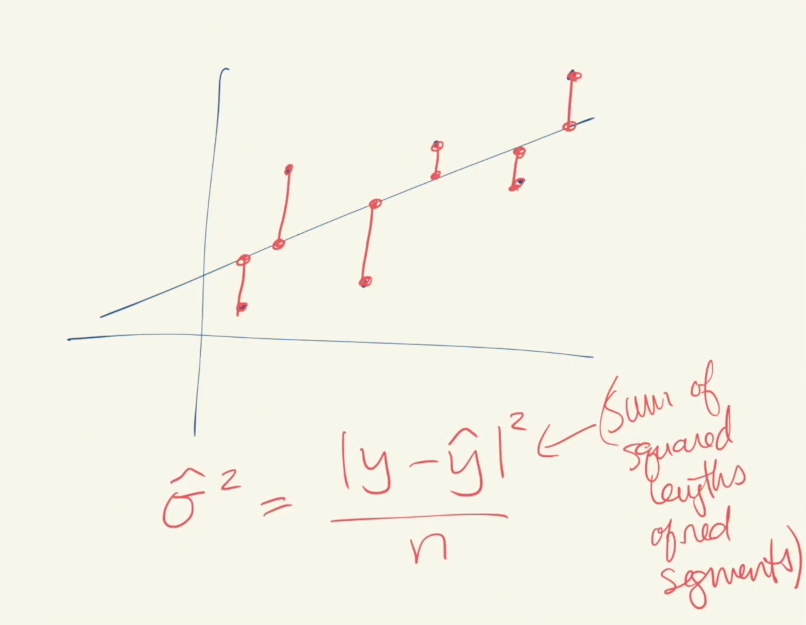 σ̂² = |y - ŷ|² / n
(sum of
squared
lengths
of red
segments)